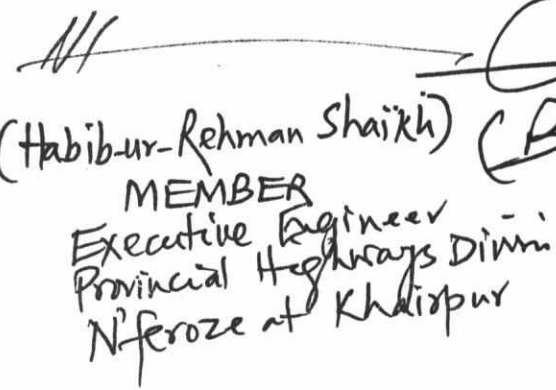 (Habib-ur-Rehman Shaikh)
MEMBER
Executive Engineer
Provincial Highways
N'feroze at Khairpur